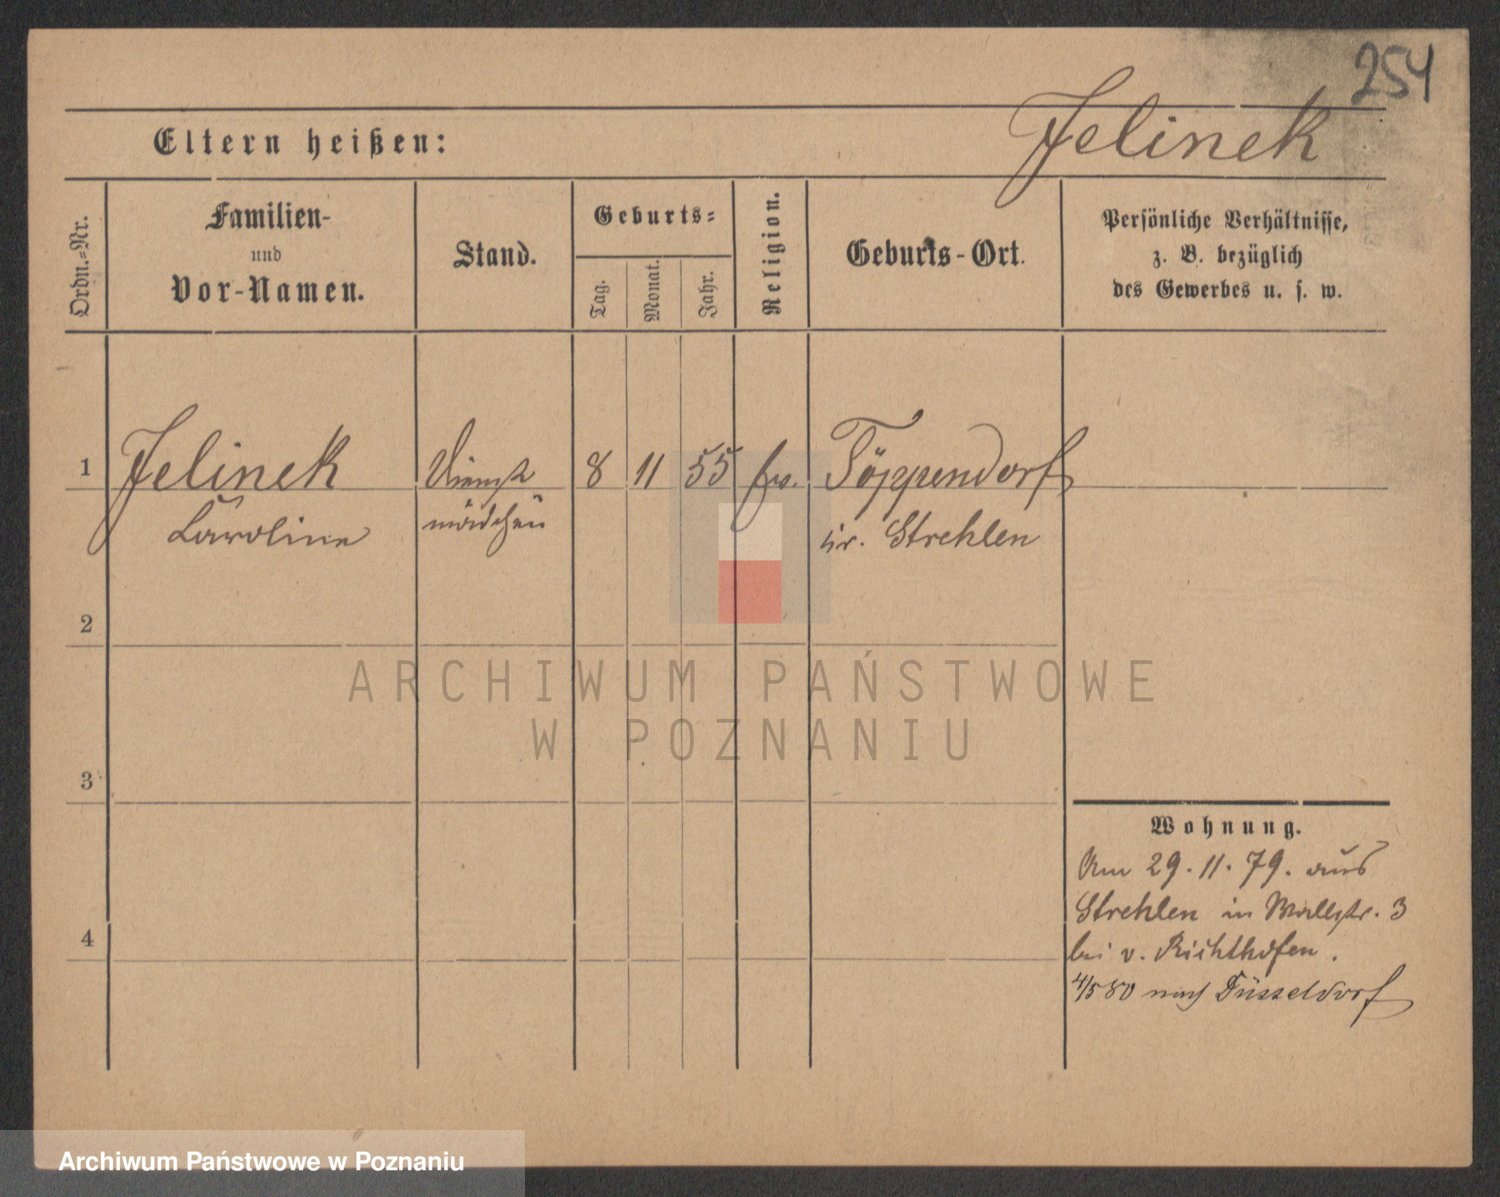 254
Eltern heißen:
Jelinek
Ordn.=Nr.
Familien-
und
Vor-Namen.
Stand.
Geburts=
Tag.
Monat.
Jahr.
Religion.
Geburts-Ort.
Persönliche Verhältnisse,
z. B. bezüglich
des Gewerbes u. s. w.
1 Jelinek Dienst 8 11 55 Töppendorf
Caroline mädchen Kr. Strehlen
2
3
4
Wohnung.
Am 29. 11. 79. aus
Strehlen in Wallstr. 3
bei v. Richthofen.
4/5 80 nach Düsseldorf
ARCHIWUM PAŃSTWOWE
W POZNANIU
Archiwum Państwowe w Poznaniu